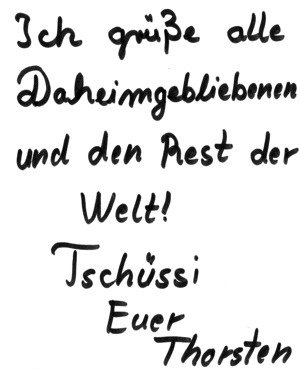 Ich grüße alle
Daheimgebliebenen
und den Rest der
Welt!
Tschüssi
Euer
Thorsten